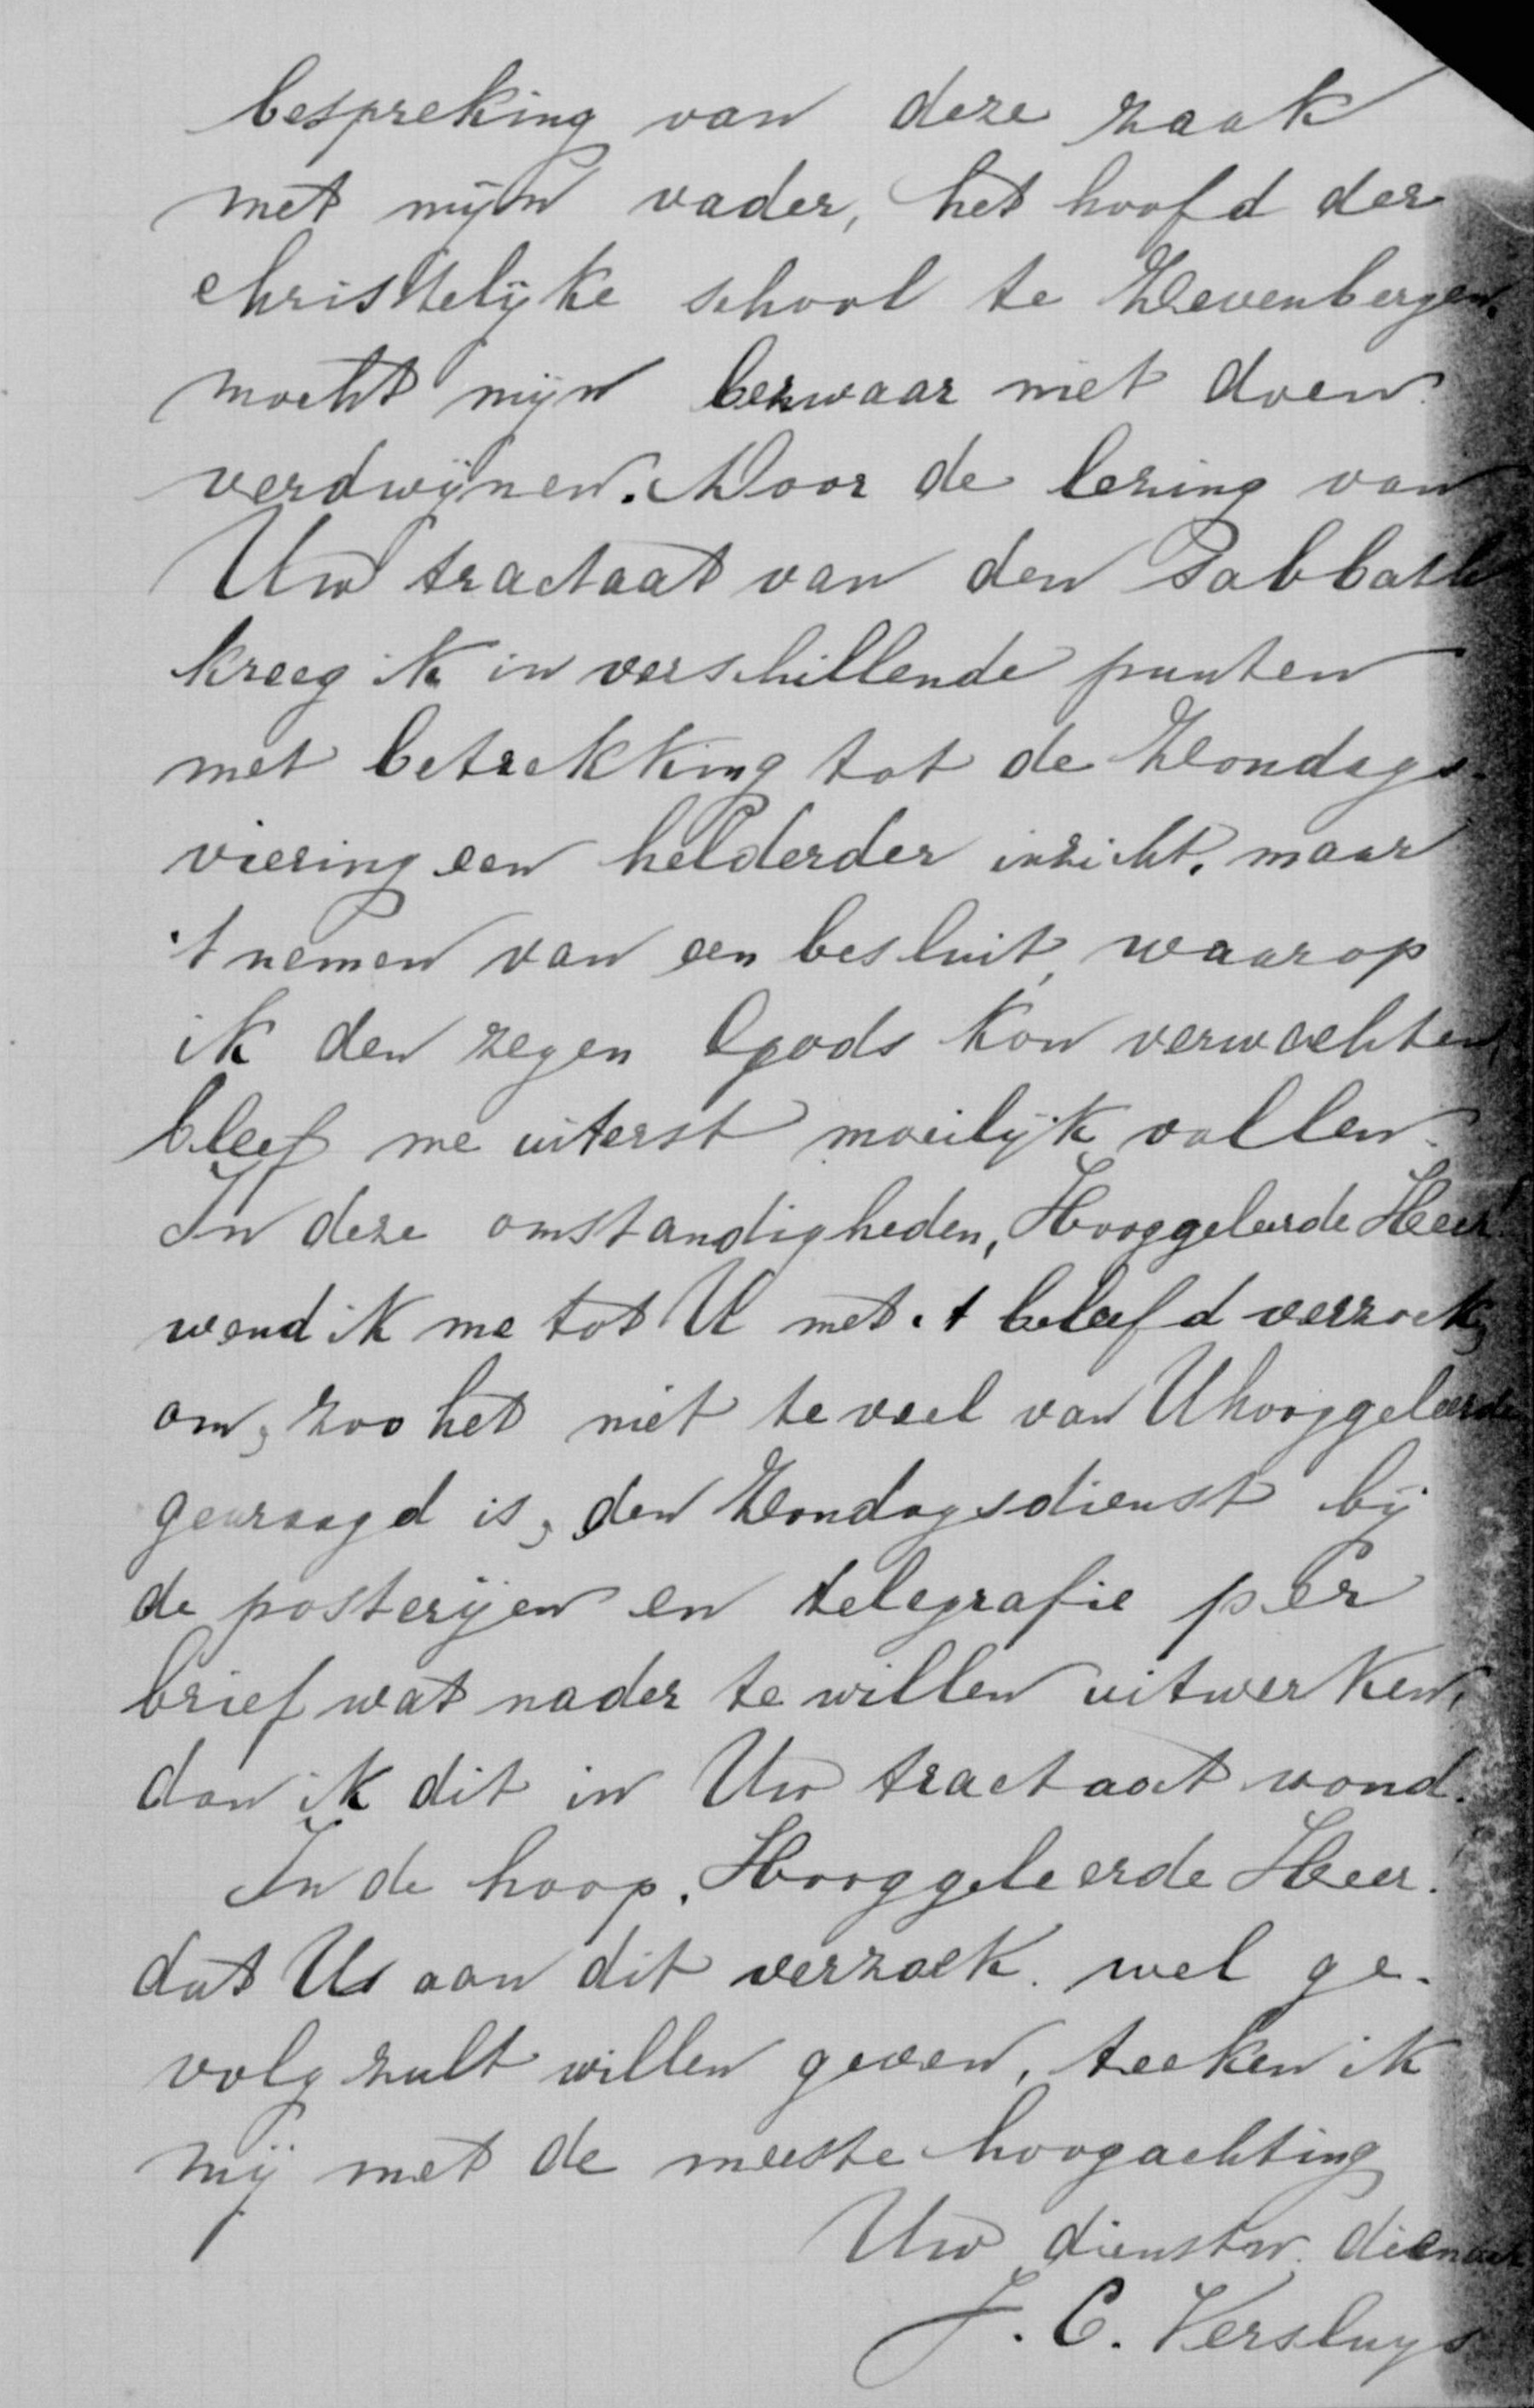 bespreking van deze zaak
met mijn vader, het hoofd der
christelijke school te Zevenbergen,
mocht mijn bezwaar niet doen
verdwijnen. Door de lezing van
Uw tractaat van den Sabbath
kreeg ik in verschillende punten
met betrekking tot de Zondags-
viering een helderder inzicht, maar
't nemen van een besluit, waarop
ik den zegen Gods kon verwachten,
bleef me uiterst moeilijk vallen.
In deze omstandigheden, Hooggeleerde Heer
wend ik me tot U met 't beleefd verzoek,
om, zoo het niet te veel van Uhooggeleerde
gevraagd is, den Zondagsdienst bij
de posterijen en telegrafie per
brief wat nader te willen uitwerken,
dan ik dit in Uw tractaat vond.
In de hoop, Hooggeleerde Heer!
dat U aan dit verzoek wel ge-
volg zult willen geven, teeken ik
mij met de meeste hoogachting
Uw dienstw. dienaar
J. C. Versluys